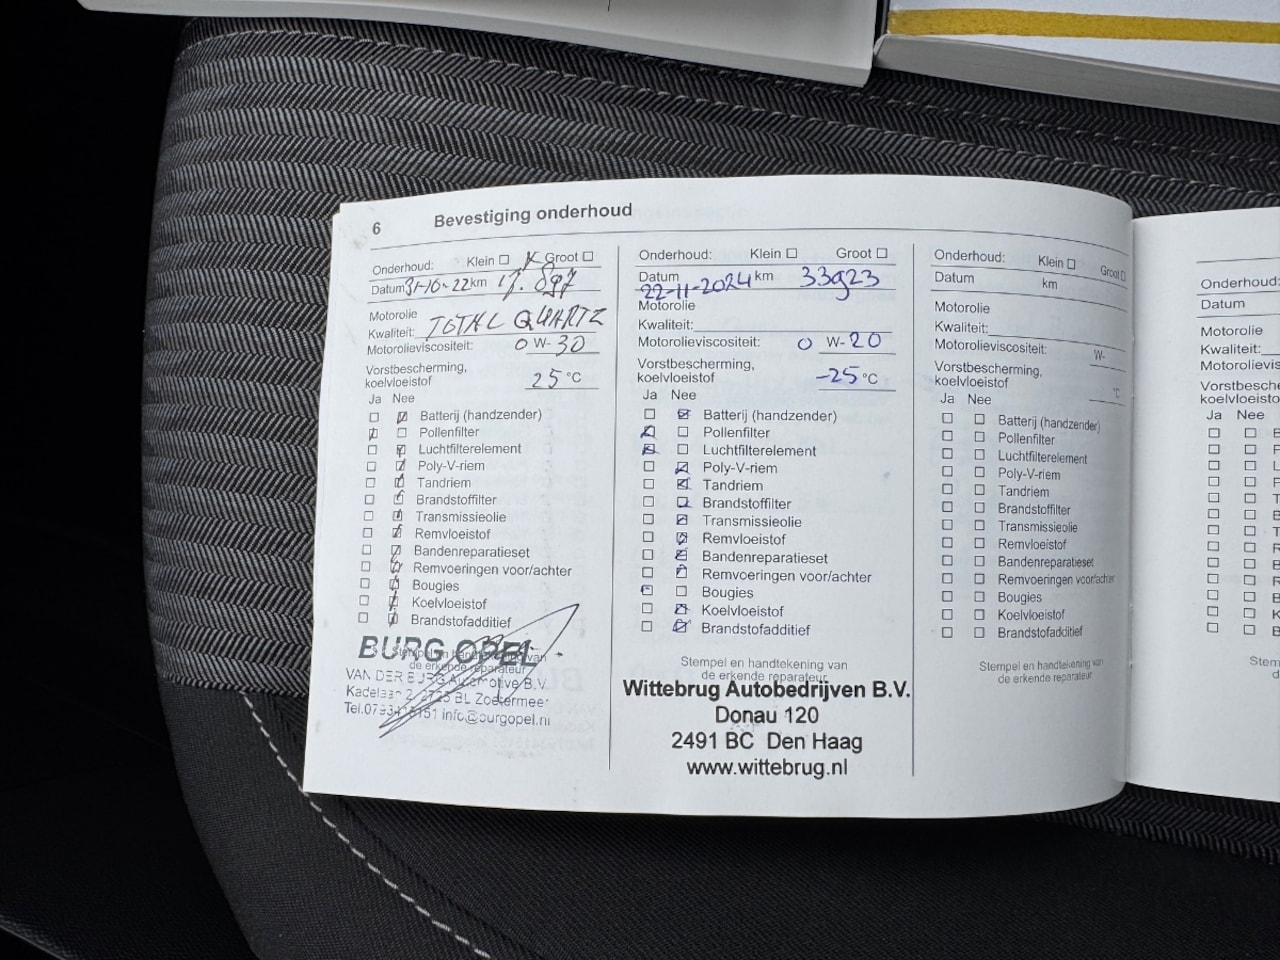 6 Bevestiging onderhoud
Onderhoud: Klein Groot
Datum 31-10-22 km 17.897
Motorolie
Kwaliteit: TOTAL QUARTZ
Motorolieviscositeit: 0 W-30
Vorstbescherming,
koelvloeistof 25 °C
Ja Nee
Batterij (handzender)
Pollenfilter
Luchtfilterelement
Poly-V-riem
Tandriem
Brandstoffilter
Transmissieolie
Remvloeistof
Bandenreparatieset
Remvoeringen voor/achter
Bougies
Koelvloeistof
Brandstofadditief
BURG OPEL
Stempel en handtekening van
de erkende reparateur
VAN DER BURG Automotive B.V.
Kadelaan 2, 2725 BL Zoetermeer
info@burgopel.nl
Onderhoud: Klein Groot
Datum 22-11-2024 km 33923
Motorolie
Kwaliteit:
Motorolieviscositeit: 0 W-20
Vorstbescherming,
koelvloeistof -25 °C
Ja Nee
Batterij (handzender)
Pollenfilter
Luchtfilterelement
Poly-V-riem
Tandriem
Brandstoffilter
Transmissieolie
Remvloeistof
Bandenreparatieset
Remvoeringen voor/achter
Bougies
Koelvloeistof
Brandstofadditief
Stempel en handtekening van
de erkende reparateur
Wittebrug Autobedrijven B.V.
Donau 120
2491 BC Den Haag
www.wittebrug.nl
Onderhoud: Klein Groot
Datum km
Motorolie
Kwaliteit:
Motorolieviscositeit: W-
Vorstbescherming,
koelvloeistof °C
Ja Nee
Batterij (handzender)
Pollenfilter
Luchtfilterelement
Poly-V-riem
Tandriem
Brandstoffilter
Transmissieolie
Remvloeistof
Bandenreparatieset
Remvoeringen voor/achter
Bougies
Koelvloeistof
Brandstofadditief
Stempel en handtekening van
de erkende reparateur
Onderhoud:
Datum
Motorolie
Kwaliteit:
Ja Nee